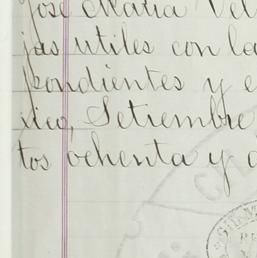 José Maria Vel
jas utiles con la
pondientes y e
xico, Setiembre
tos ochenta y